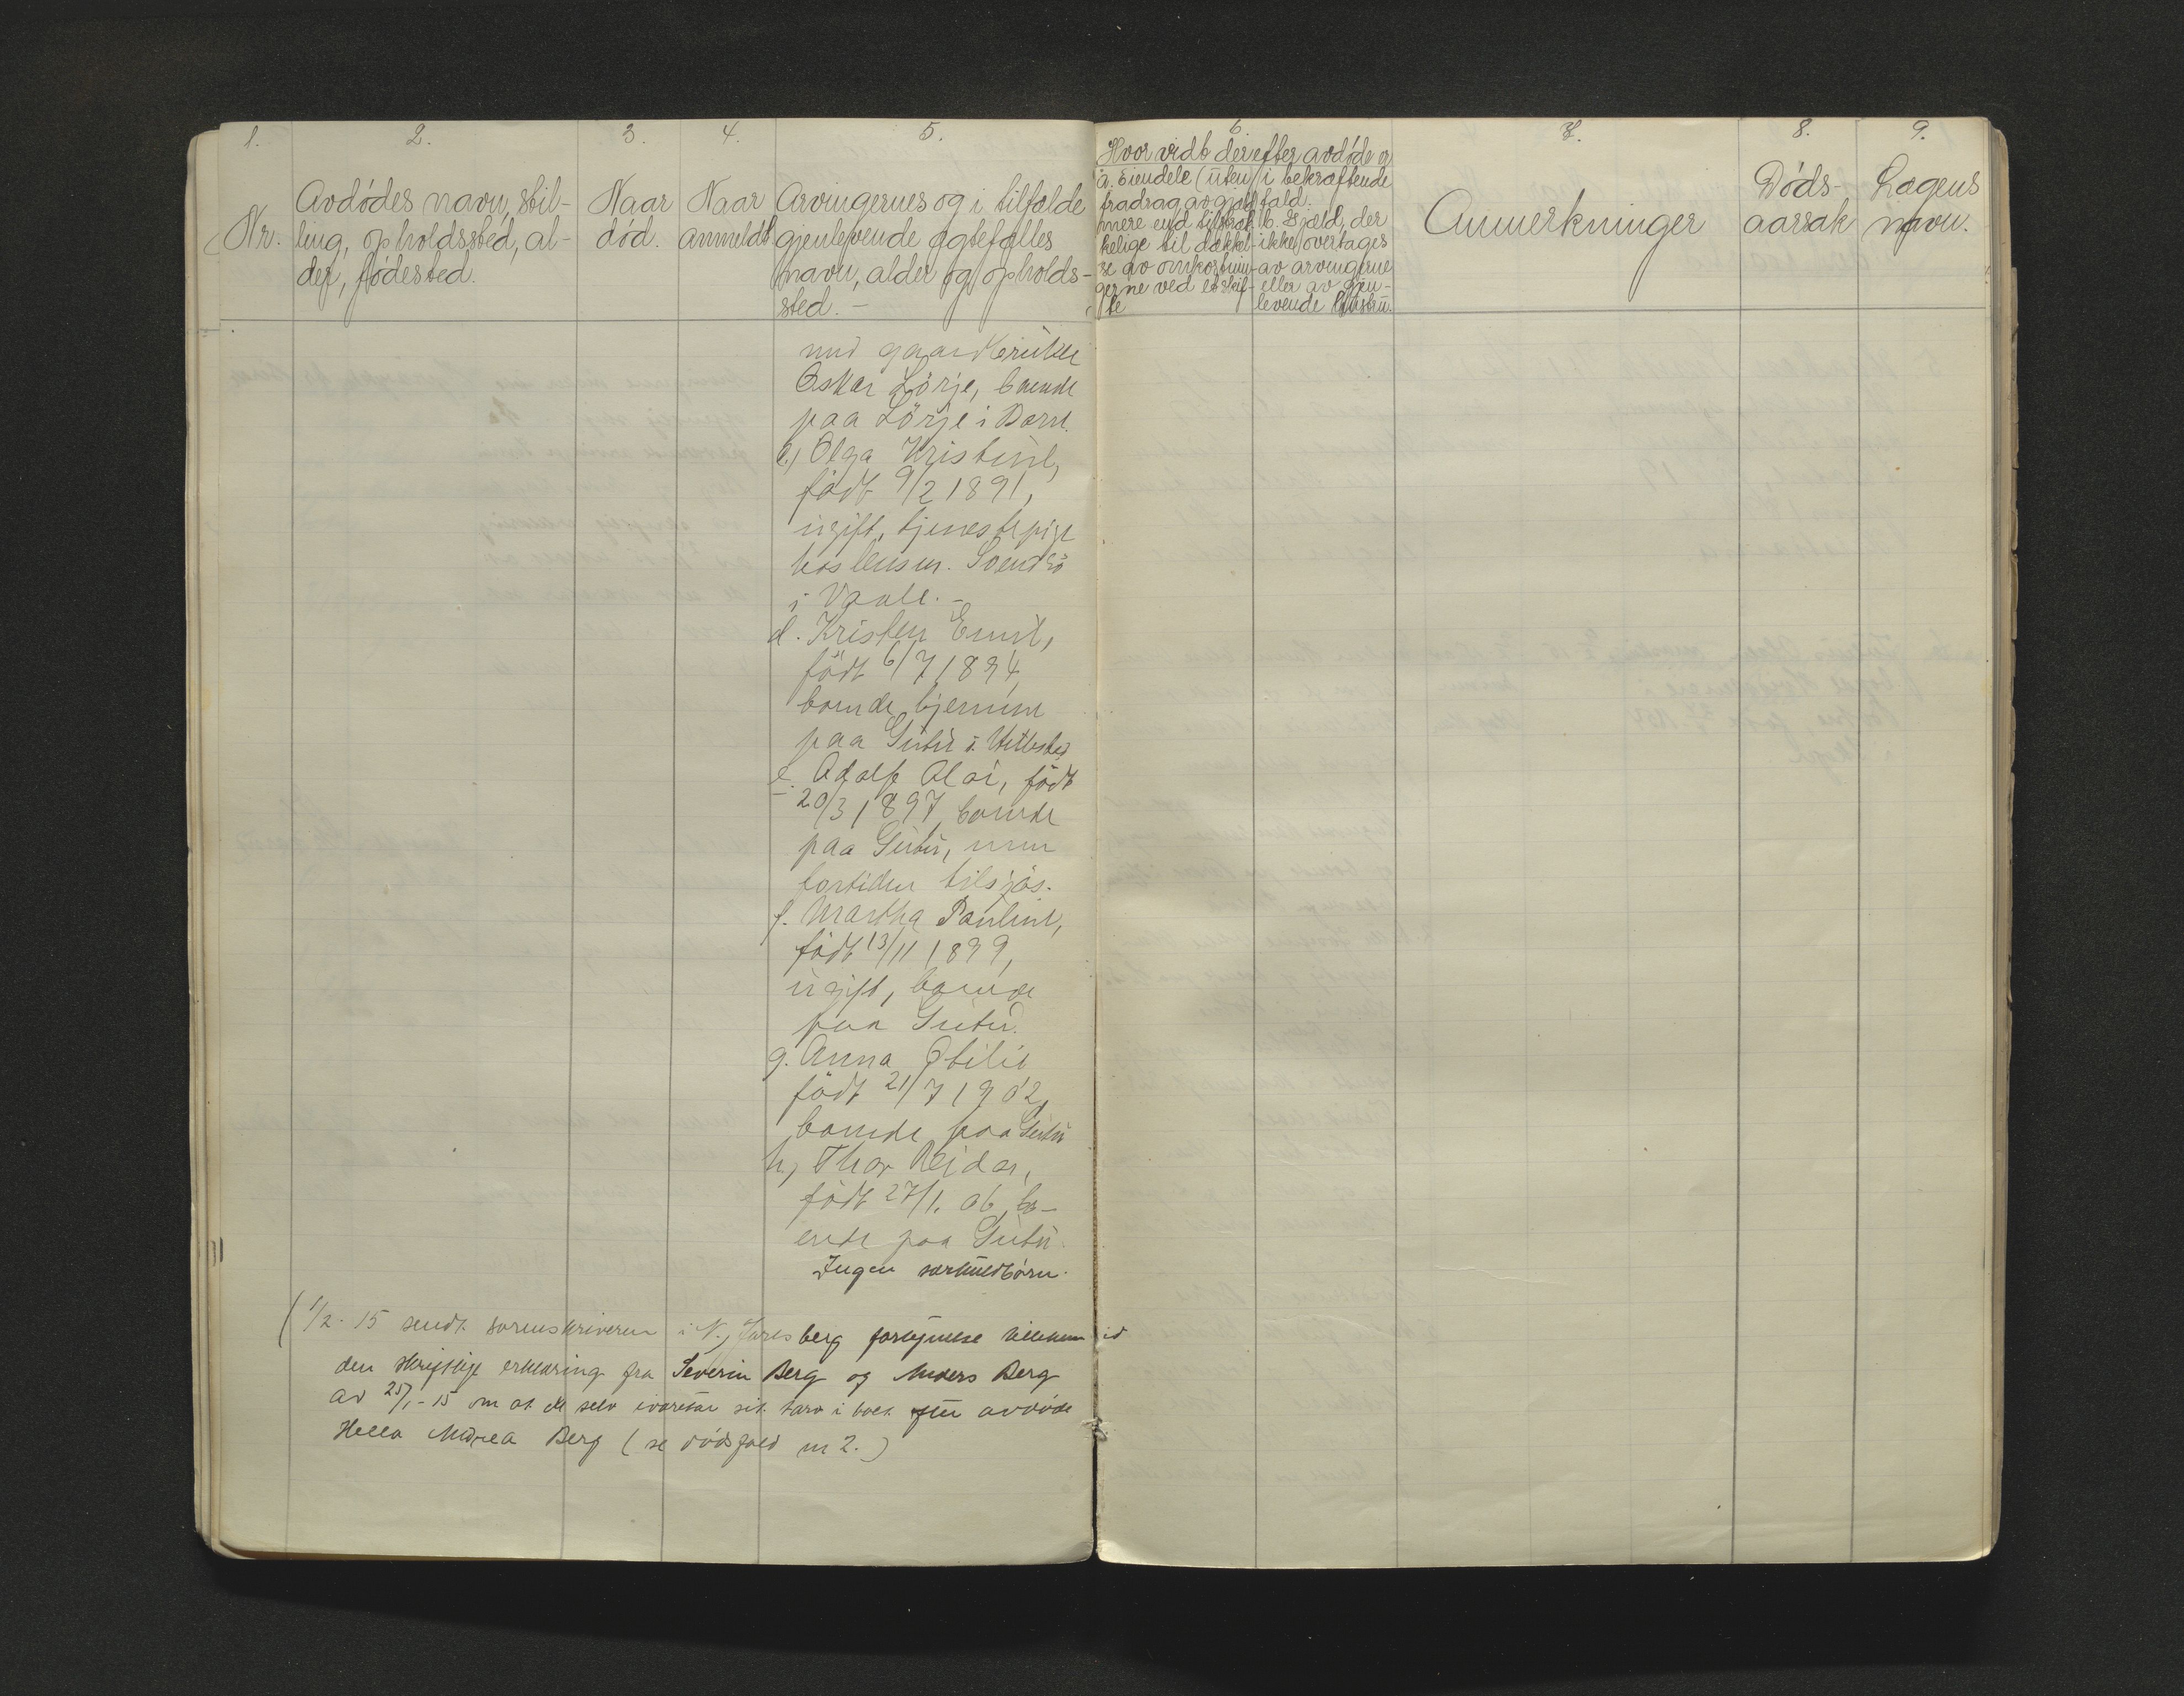 1.
2.
3.
4.
5.
Nr.
Avdødes navn, stil-
ling, opholdssted, al-
der, fødested.
Naar
død.
Naar
anmeldt
Arvingernes og i tilfælde
gjenlevende ægtefælles
navn, alder og opholds-
sted. -
6.
Hvorvidt der efter avdøde er
a. Eiendele (uten
fradrag av gjæld
mere end tilstræk-
kelige til dækkel-
se av omkostnin-
gerne ved et skif-
te
i bekræftende
fald.
b. Gjæld, der
ikke overtages
av arvingerne
eller av gjen-
levende
7.
Anmerkninger
8.
Døds-
aarsak
9.
Lægens
navn.
med gaardbruker
Oskar Lörje, boende
paa Lörje i Borre.
c, Olga Kristine,
född 9/2 1891,
ugift, tjenestepige
hos lensm.
i Vaale. -
d. Kristen Emil,
född 6/7 1894,
boende hjemme
paa Gutu i
e. Adolf Olai, född
20/3 1897, boende
paa Gutu, men
fortiden tilsjøs.
f. Martha Pauline,
född 13/11 1899,
ugift, boende
paa Gutu.
g. Anna Otilie
född 21/7 1902,
boende paa Gutu
h, Thor Reidar,
född 27/1. 06, bo-
ende paa Gutu.
Ingen særkuldbörn.
(1/2. 15 sendt sorenskriveren i N. Jarlsberg
den skriftlige erklæring fra Severin Berg og Anders Berg
av 25/1 - 15 om at de selv ivaretar sit tarv i boet efter avdöde
Andrea Berg (se dödsfald nr 2.)